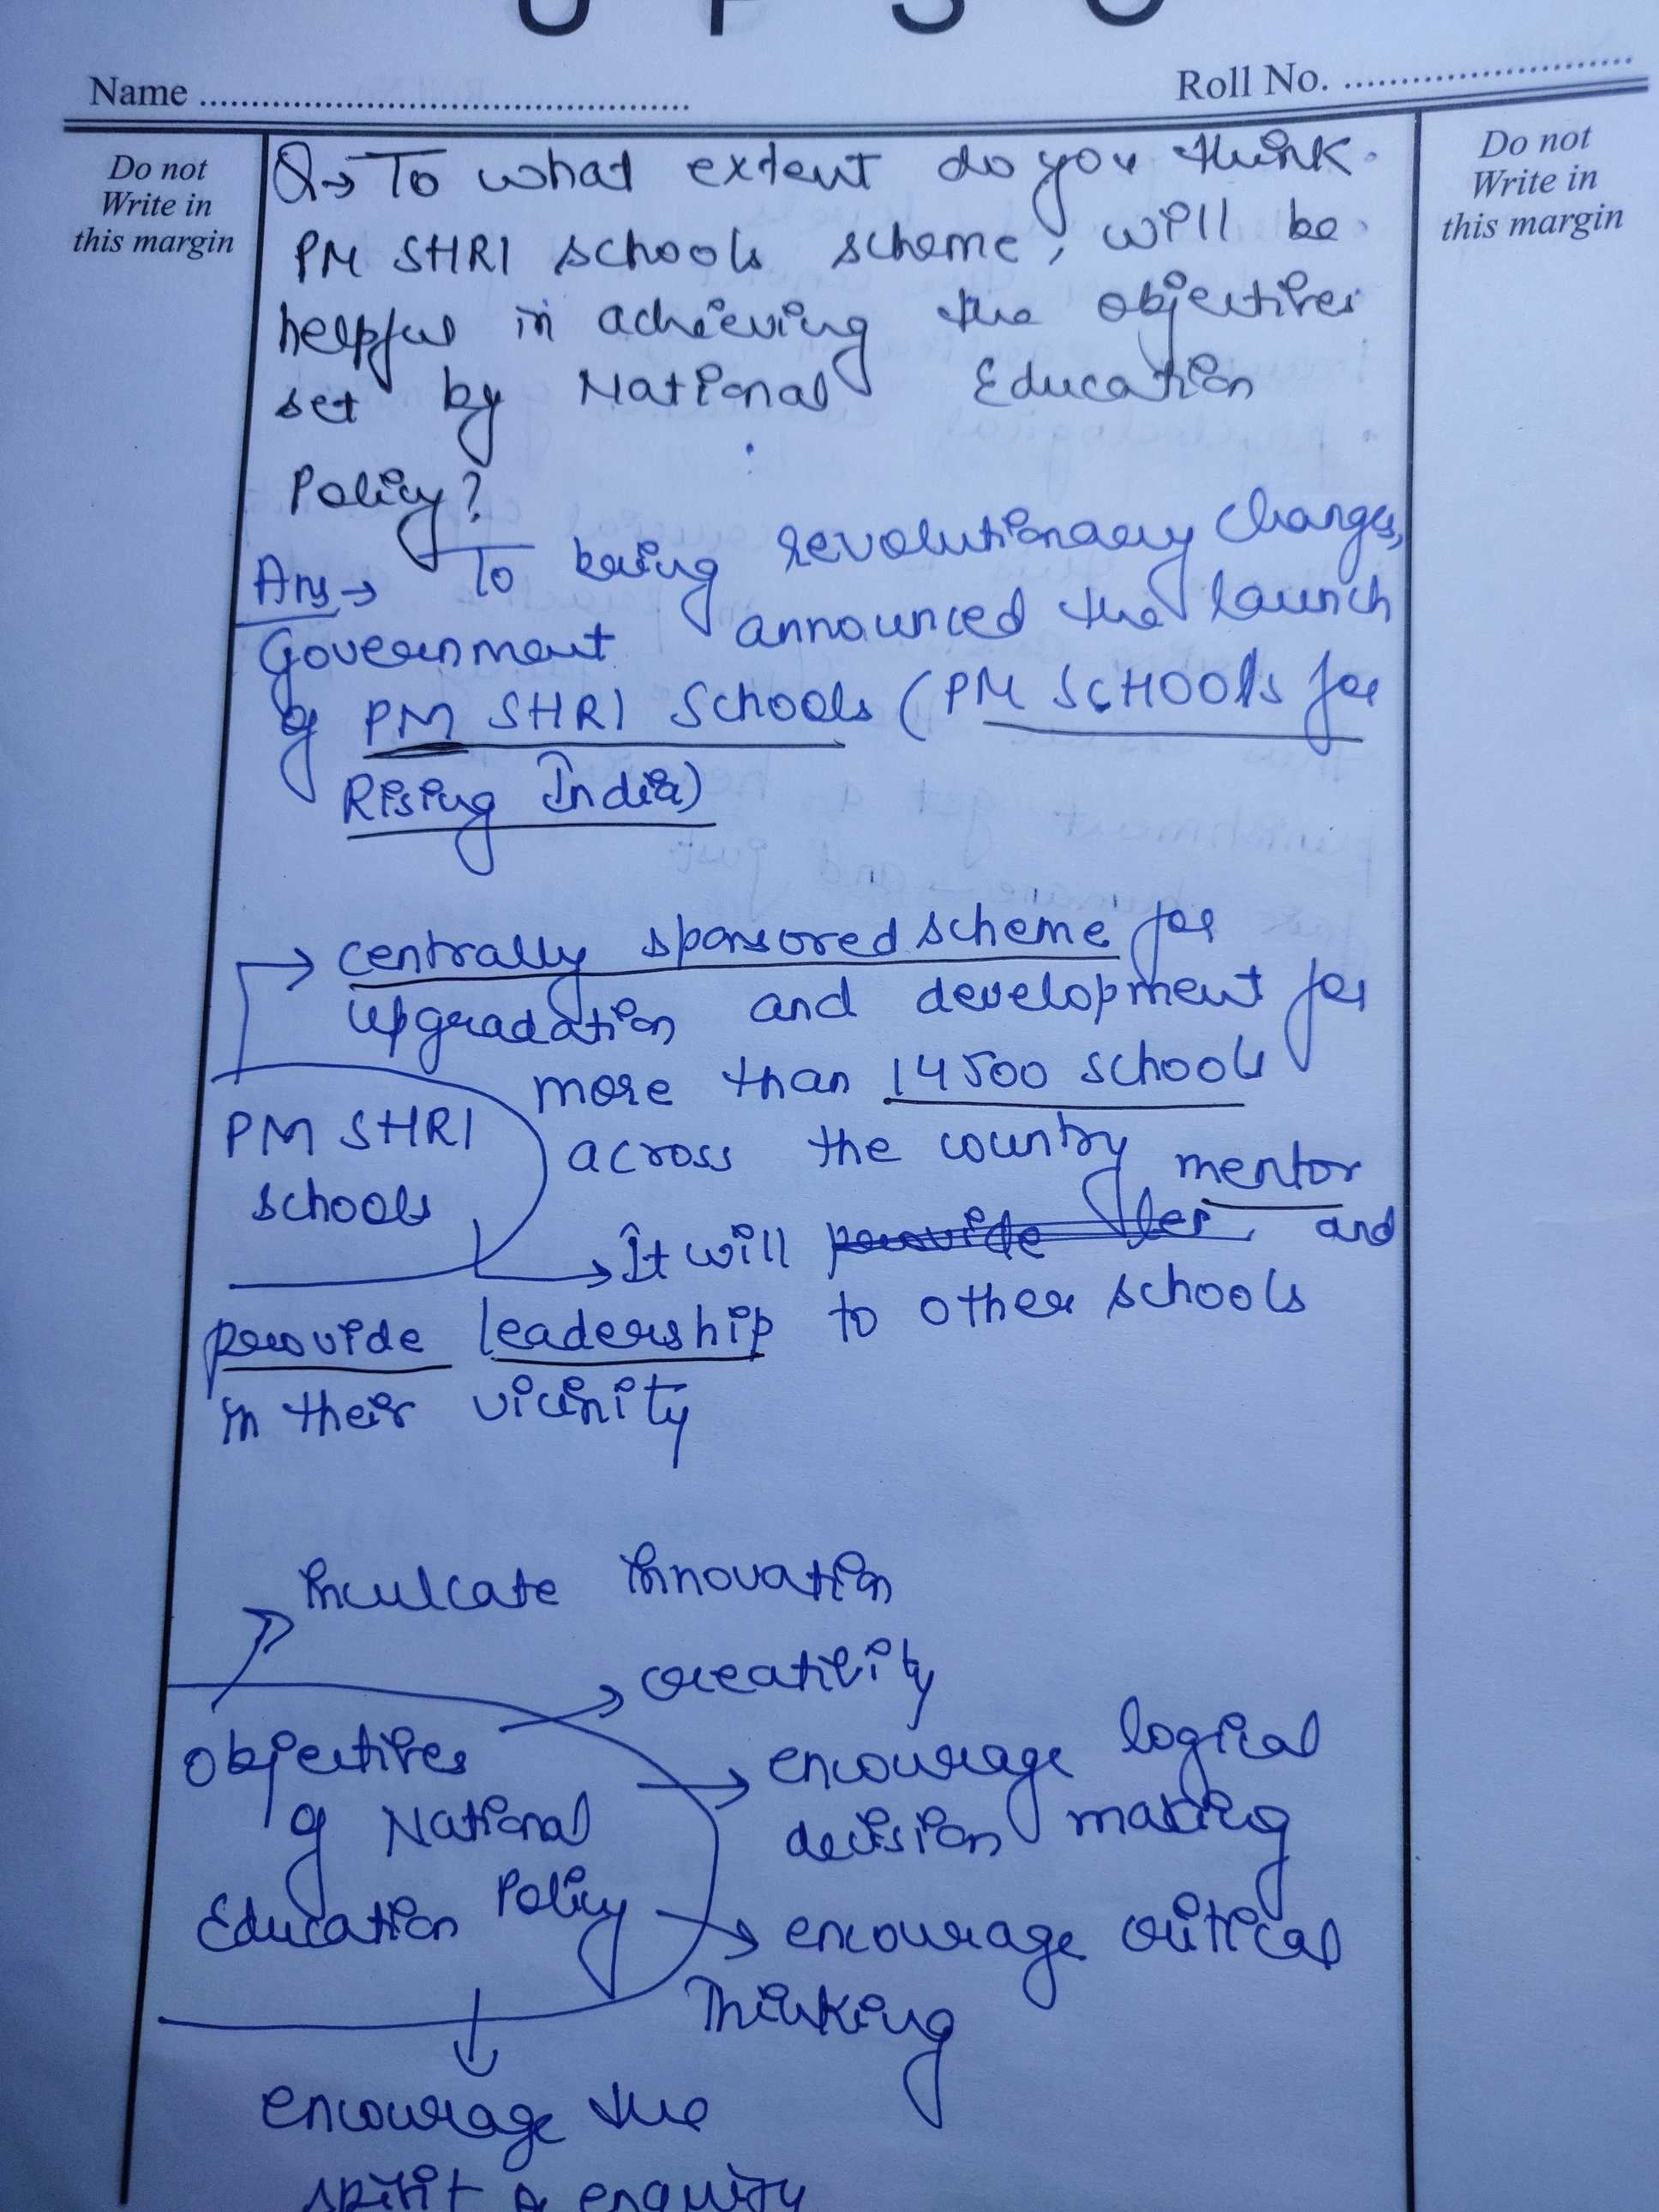 U P S C
Name ........................................ Roll No. ........................
Do not
Write in
this margin
Do not
Write in
this margin
Q→ To what extent do you think
PM SHRI schools scheme, will be
helpful in achieving the objectives
set by National Education
Policy?
Ans→ To bring revolutionary changes,
Government announced the launch
of PM SHRI Schools (PM SCHOOLS for
Rising India)
→ centrally sponsored scheme for
upgradation and development for
more than 14500 schools
across the country
PM SHRI
schools
mentor
→ It will provide and
provide leadership to other schools
in their vicinity
Inculcate innovation
→ creativity
Objectives
of National
Education Policy
→ encourage logical
decision making
→ encourage critical
Thinking
encourage the
spirit of enquiry